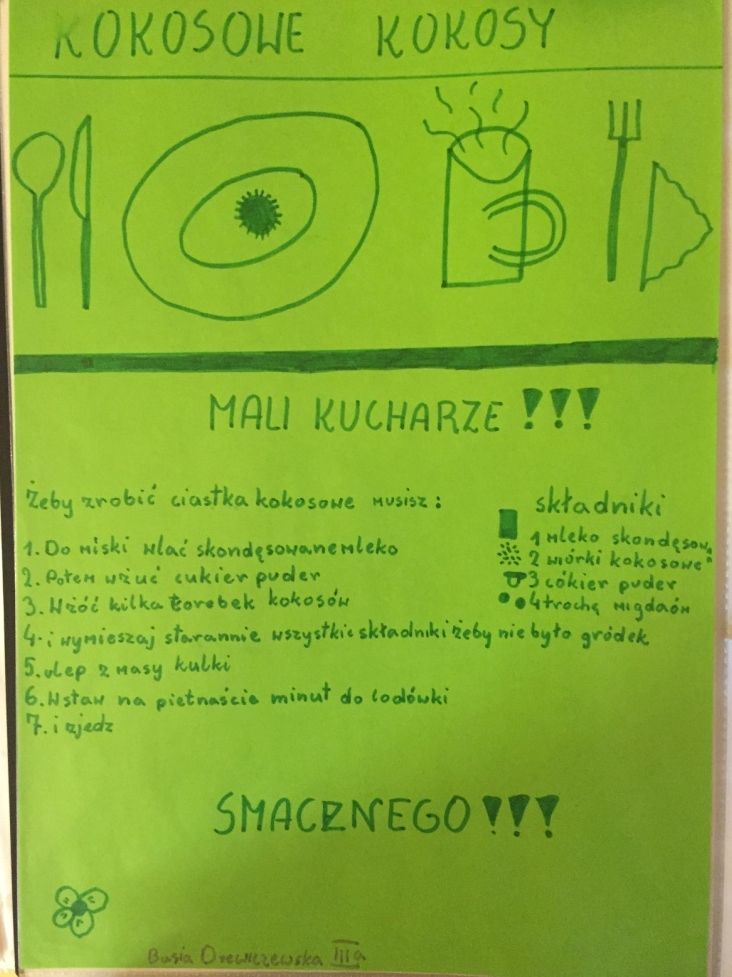 KOKOSOWE KOKOSY
MALI KUCHARZE !!!
Żeby zrobić ciastka kokosowe musisz:
1. Do miski wlać skondęsowane mleko
2. Potem wżuć cukier puder
3. Wżóć kilka torebek kokosów
4. i wymieszaj starannie wszystkie składniki żeby nie było gródek
5. ulep z masy kulki
6. Wstaw na pietnaście minut do lodówki
7. i zjedz
składniki
1 mleko skondęsow.
2 wiórki kokosowe
3 cókier puder
4 trochę migdaów
SMACZNEGO !!!
Basia IIIa